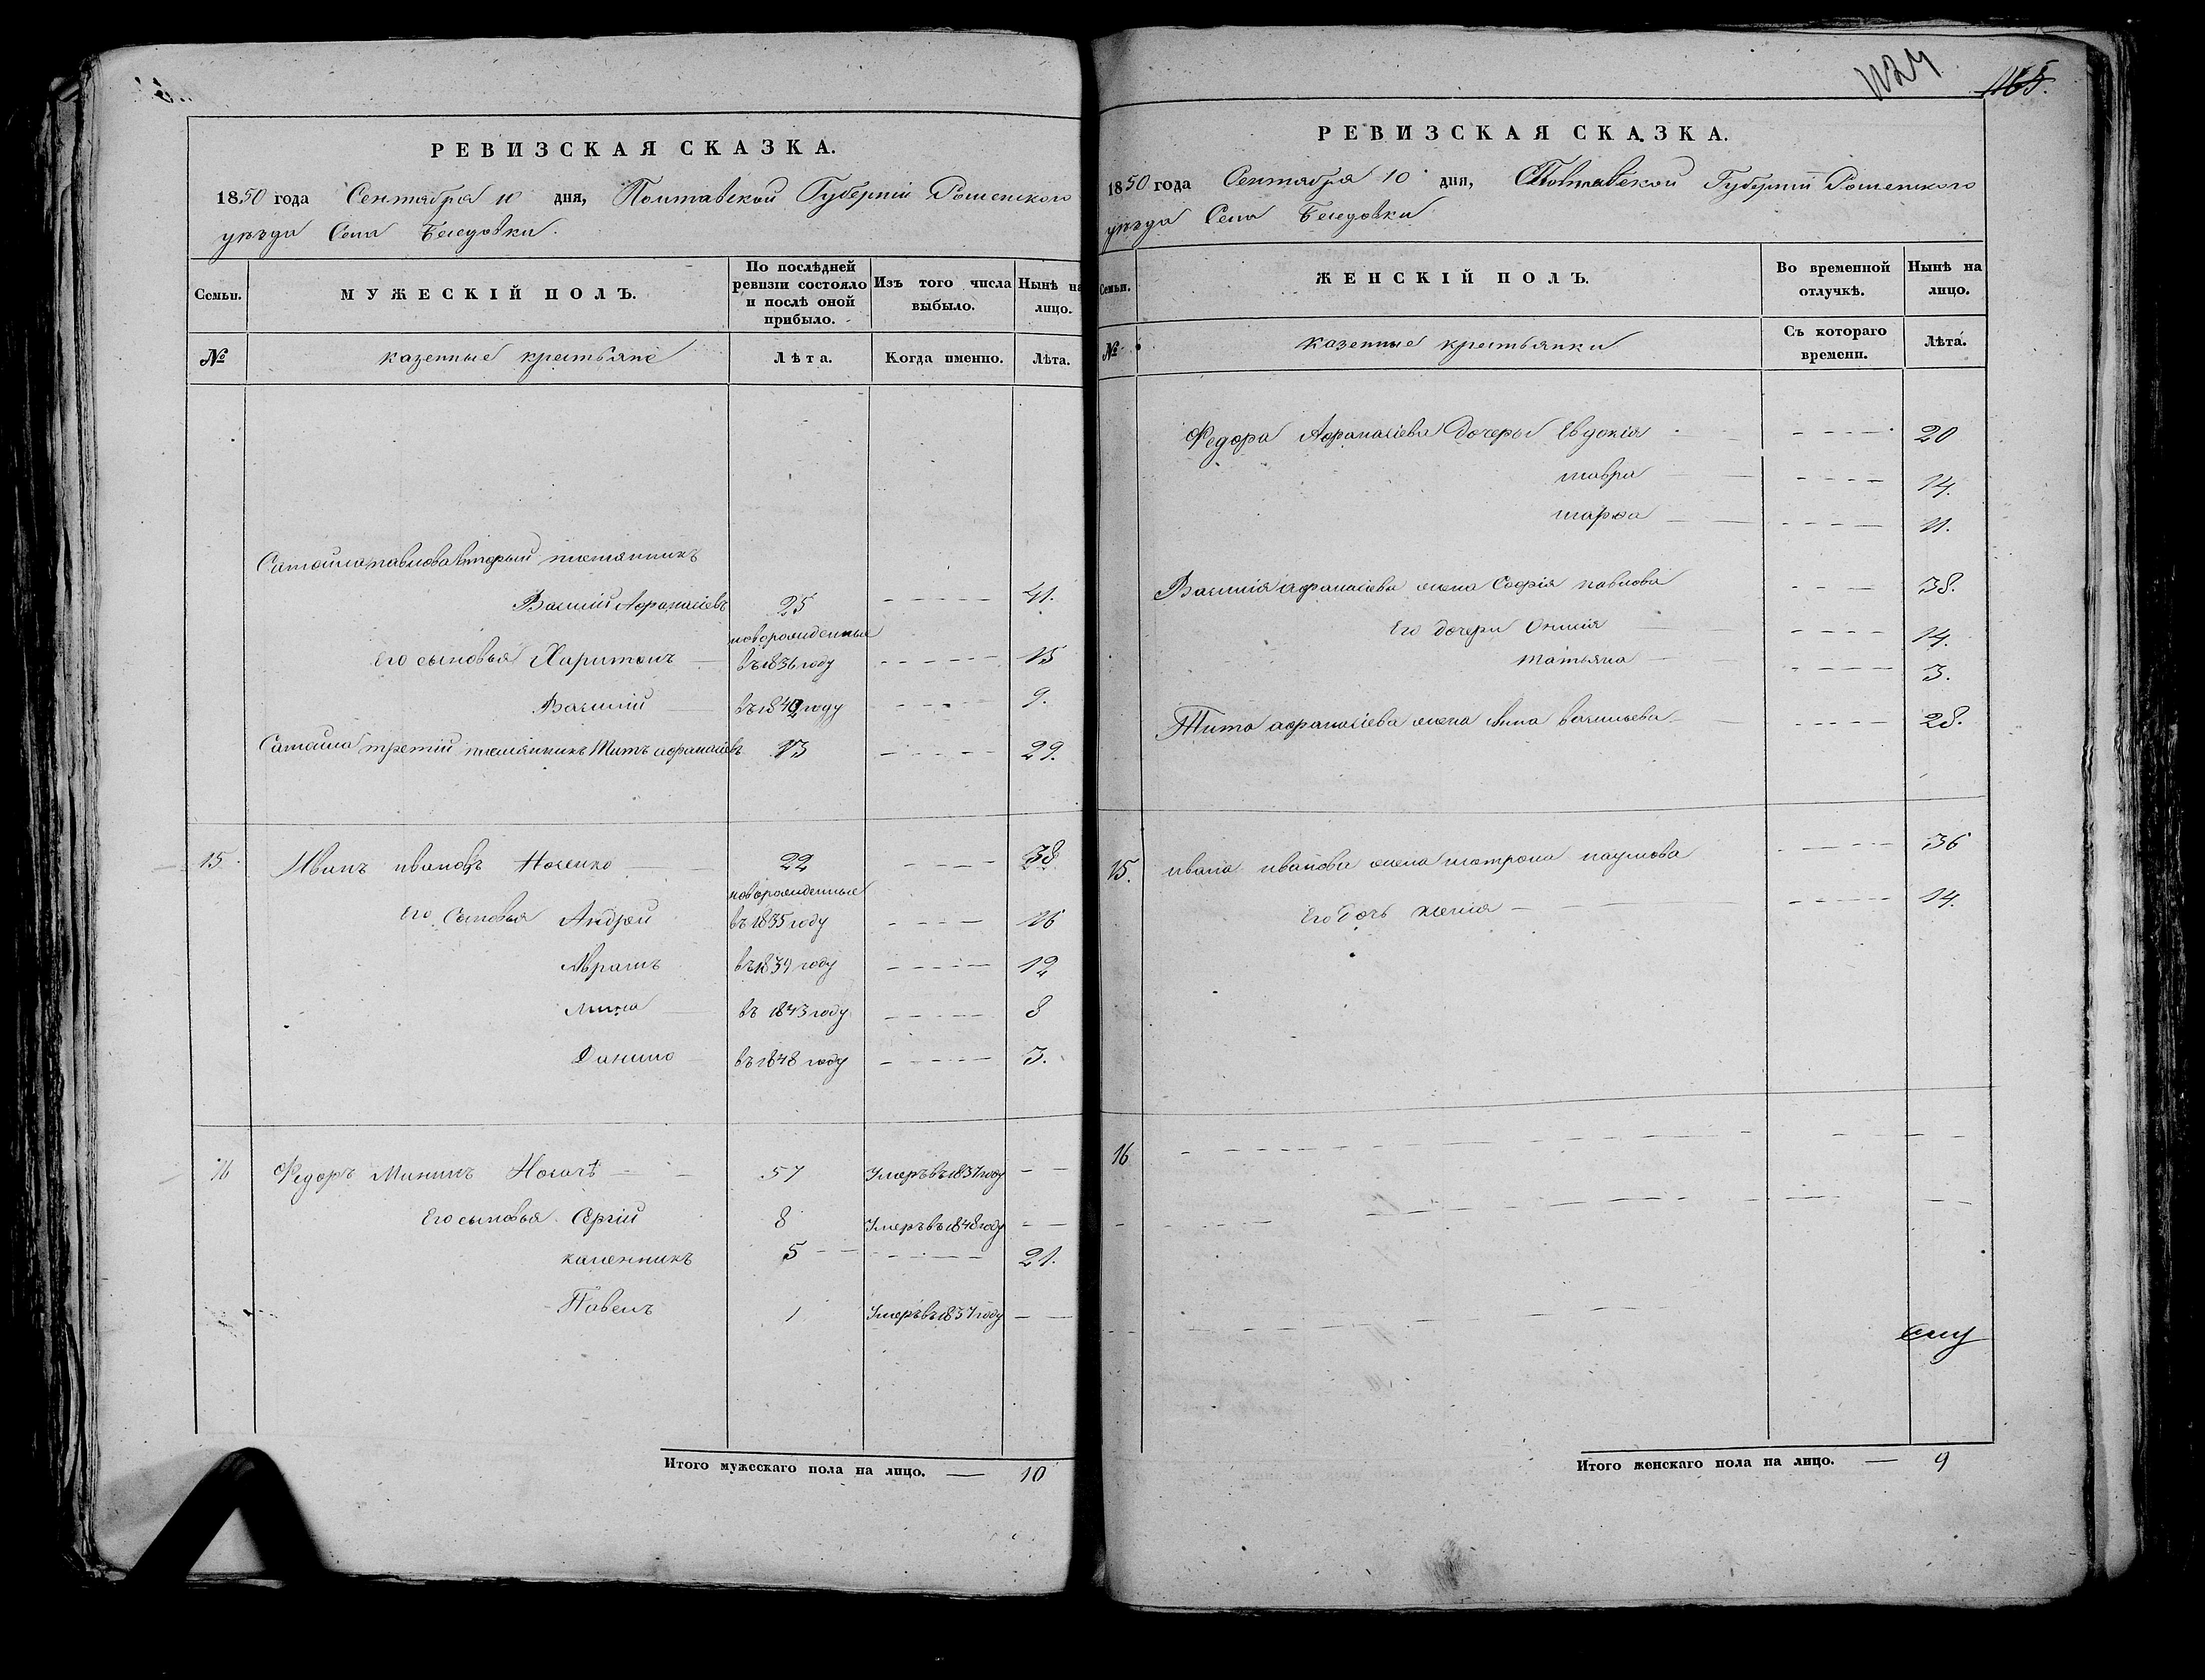 РЕВИЗСКАЯ СКАЗКА.
1850 года Сентября 10 дня, Полтавской Губерніи Роменского
уѣзда Села Беседовки.
Семьи. МУЖЕСКІЙ ПОЛЪ. По послѣдней ревизіи состояло и послѣ оной прибыло. Изъ того числа выбыло. Нынѣ на лицо.
№ казенные крестьяне Лѣта. Когда именно. Лѣта.
Самойла павлова вторый племянникъ
Василій Афанасіевъ 25 41.
новорожденные
Его сыновья Харитонъ въ 1836 году 15
Василій въ 1842 году 9.
Самойла третій племянникъ Титъ афанасіевъ 13 29.
15. Иванъ ивановъ Носенко 22 38
новорожденные
Его Сыновья Андрей въ 1835 году 16
Абрамъ въ 1839 году 12
Мина въ 1843 году 8
Данило въ 1848 году 3.
16 Федоръ Мининъ Носачъ 57 Умеръ въ 1837 году
Его сыновья Сергій 8 Умеръ въ 1848 году
каленникъ 5 21.
Павелъ 1 Умеръ въ 1837 году
Итого мужескаго пола на лицо. — 10
1124
165.
РЕВИЗСКАЯ СКАЗКА.
1850 года Сентября 10 дня, Полтавской Губерніи Роменского
уѣзда Села Беседовки
Семьи. ЖЕНСКІЙ ПОЛЪ. Во временной отлучкѣ. Нынѣ на лицо.
№ казенные крестьянки Съ котораго времени. Лѣта.
Федора Афанасіева дочеры Евдокія 20
мавра 14.
марфа 11.
Василія афанасіева жена Софія павлова 38.
Его дочери 14.
татьяна 3.
Тита афанасіева жена Анна васильева 28.
15. ивана иванова жена матрона наумова 36
Его дочь ксенія 14.
16
Итого женскаго пола на лицо. — 9